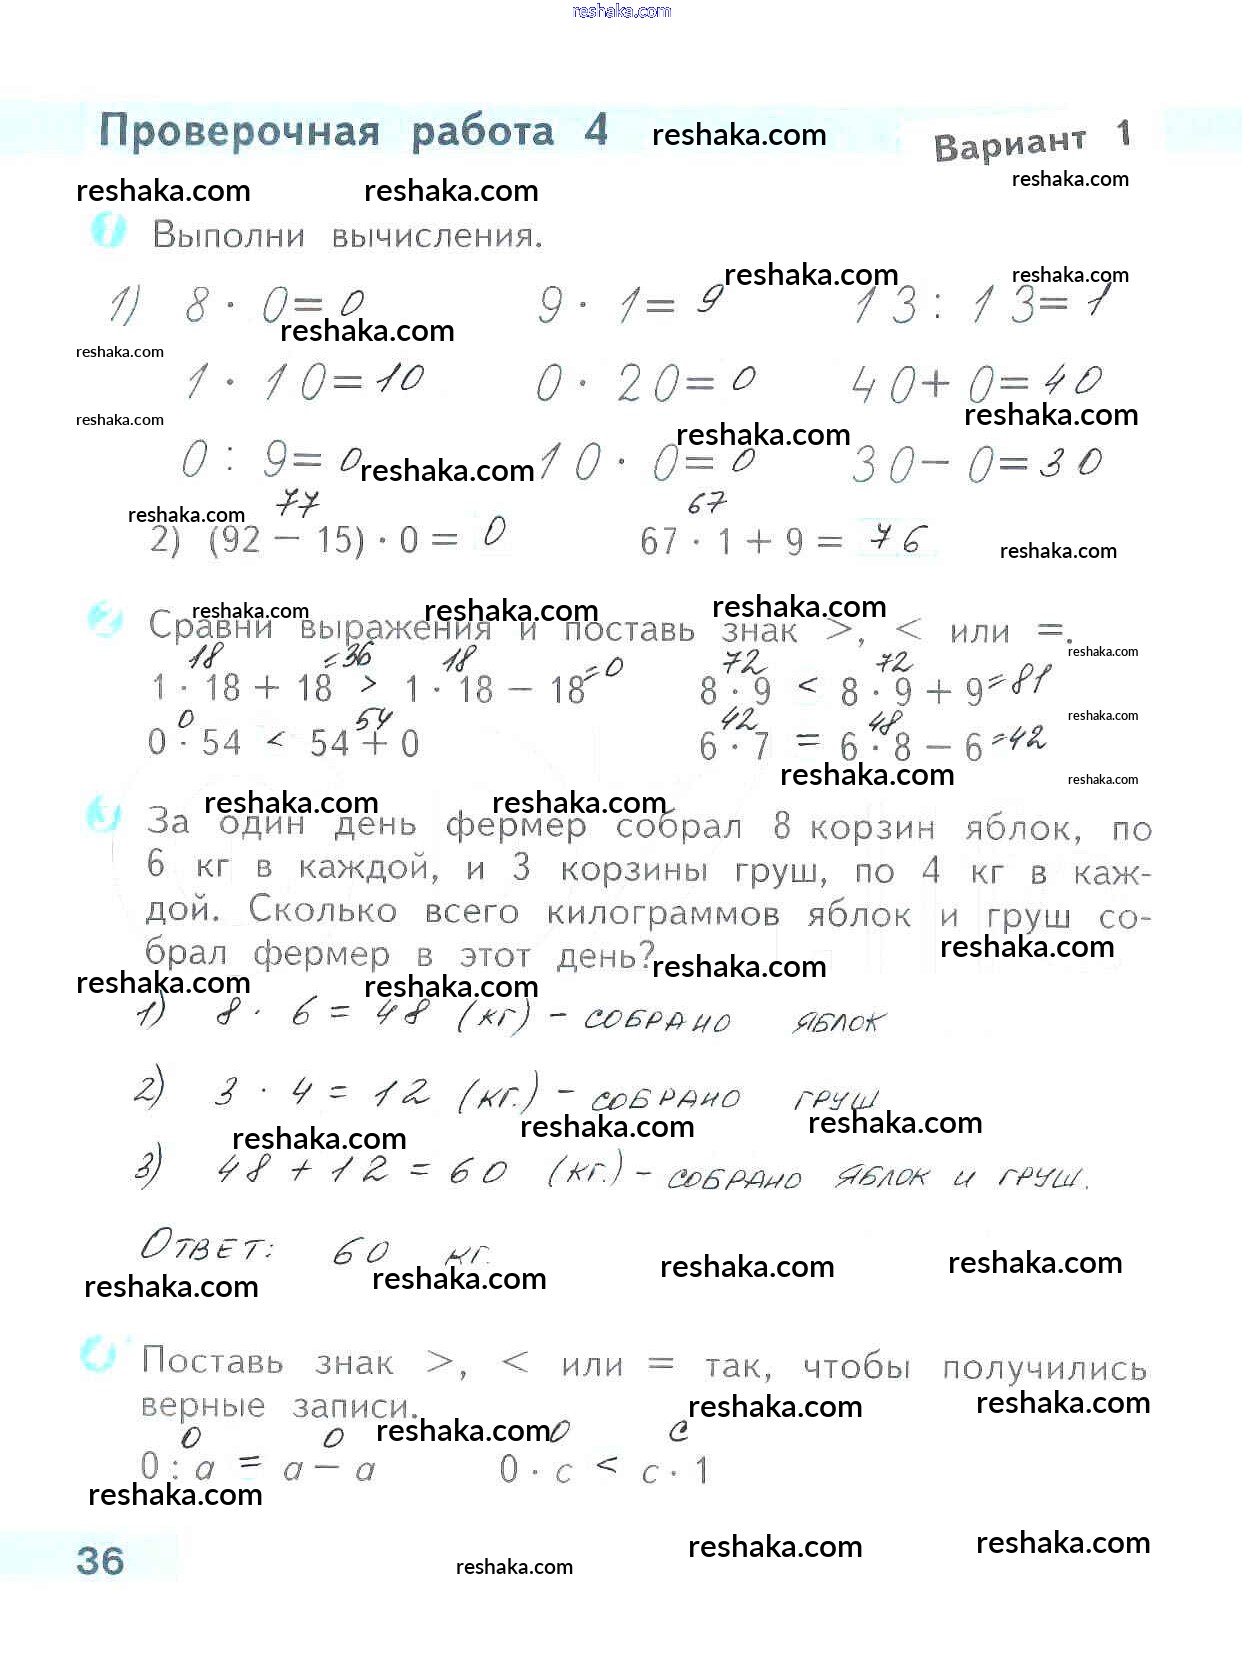 reshaka.com
Проверочная работа 4 reshaka.com Вариант 1
reshaka.com reshaka.com reshaka.com
1 Выполни вычисления.
reshaka.com reshaka.com
1) 8 · 0 = 0 9 · 1 = 9 13 : 13 = 1
reshaka.com
reshaka.com
1 · 10 = 10 0 · 20 = 0 40 + 0 = 40
reshaka.com reshaka.com
reshaka.com
0 : 9 = 0 reshaka.com 10 · 0 = 0 30 − 0 = 30
77 67
reshaka.com
2) (92 − 15) · 0 = 0 67 · 1 + 9 = 76
reshaka.com
reshaka.com reshaka.com reshaka.com
2 Сравни выражения и поставь знак >, < или =.
reshaka.com
18 =36 18 =0 72 72
1 · 18 + 18 > 1 · 18 − 18 8 · 9 < 8 · 9 + 9 =81
0 54 42 48 reshaka.com
0 · 54 < 54 + 0 6 · 7 = 6 · 8 − 6 =42
reshaka.com reshaka.com
reshaka.com reshaka.com
За один день фермер собрал 8 корзин яблок, по
6 кг в каждой, и 3 корзины груш, по 4 кг в каж-
дой. Сколько всего килограммов яблок и груш со-
брал фермер в этот день?
reshaka.com reshaka.com
reshaka.com reshaka.com
1) 8 · 6 = 48 (кг) – СОБРАНО ЯБЛОК
2) 3 · 4 = 12 (кг.) – СОБРАНО ГРУШ
reshaka.com reshaka.com reshaka.com
3) 48 + 12 = 60 (кг.) – СОБРАНО ЯБЛОК И ГРУШ.
ОТВЕТ: 60 кг.
reshaka.com reshaka.com reshaka.com reshaka.com
Поставь знак >, < или = так, чтобы получились
верные записи.
reshaka.com reshaka.com
0 0 reshaka.com 0 c
0 : a = a − a 0 · c < c · 1
reshaka.com
reshaka.com reshaka.com
36 reshaka.com